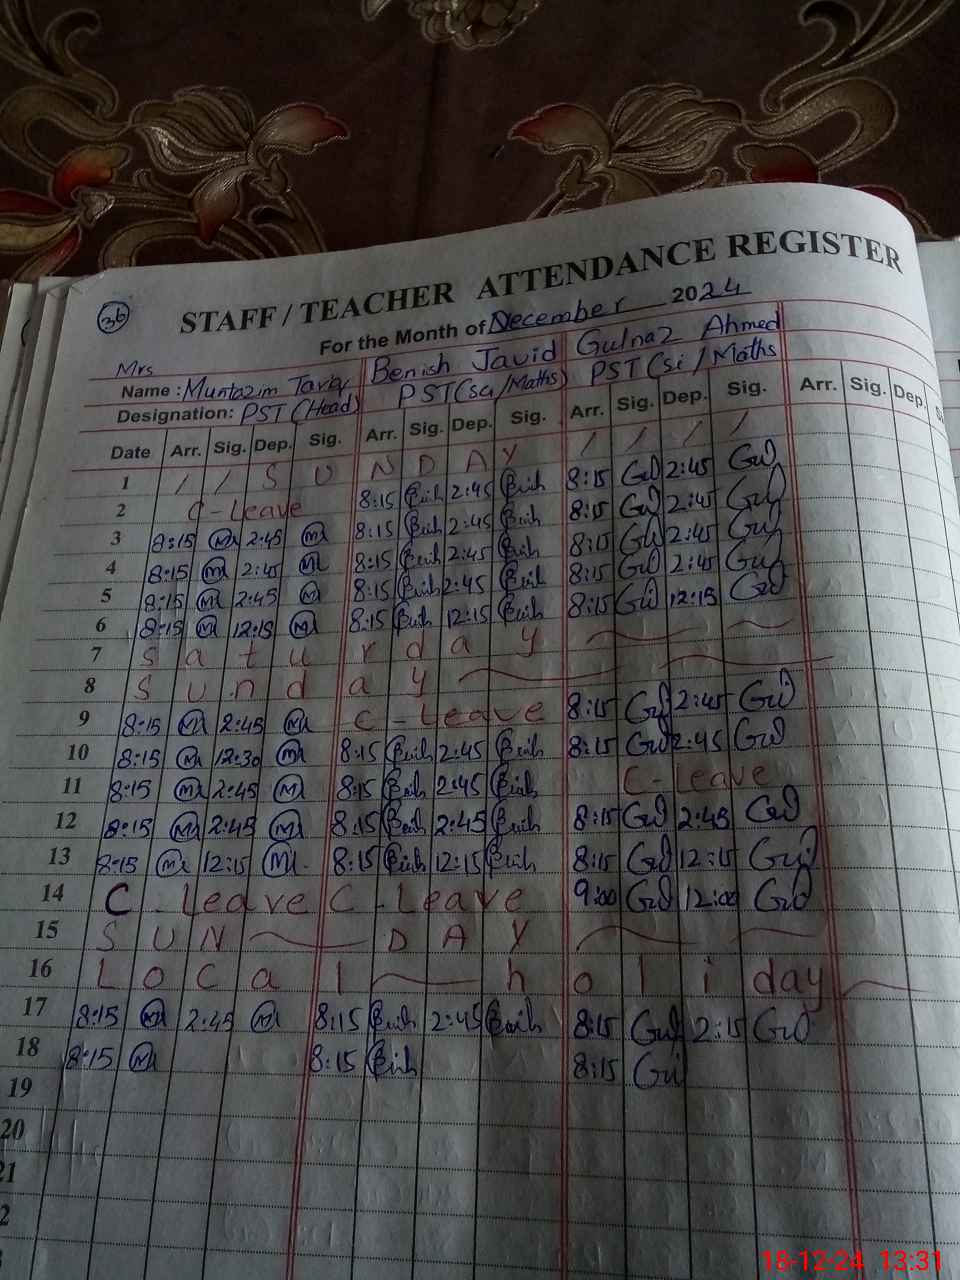 36
STAFF / TEACHER ATTENDANCE REGISTER
For the Month of December 2024
Mrs
Name : Muntazim Benish Javid Gulnaz Ahmed
Designation: PST (Head) PST (Sci/Maths) PST (Si / Maths
Date Arr. Sig. Dep. Sig. Arr. Sig. Dep. Sig. Arr. Sig. Dep. Sig. Arr. Sig. Dep.
1 / / S U N D A Y / / / /
2 C-Leave 8:15 2:45 8:15 Gul 2:45 Gul
3 8:15 2:45 8:15 2:45 8:15 Gul 2:45 Gul
4 8:15 2:45 8:15 2:45 8:15 Gul 2:45 Gul
5 8:15 2:45 8:15 2:45 8:15 Gul 2:45 Gul
6 8:15 12:15 8:15 12:15 8:15 Gul 12:15 Gul
7 S a t u r d a y
8 S u n d a y
9 8:15 2:45 C - Leave 8:15 Gul 2:45 Gul
10 8:15 12:30 8:15 2:45 8:15 Gul 2:45 Gul
11 8:15 2:45 8:15 2:45 C-Leave
12 8:15 2:45 8:15 2:45 8:15 Gul 2:45 Gul
13 8:15 12:15 8:15 12:15 8:15 Gul 12:15 Gul
14 C - Leave C - Leave 9:00 Gul 12:00 Gul
15 S U N D A Y
16 L o c a l h o l i day
17 8:15 2:45 8:15 2:45 8:15 Gul 2:15 Gul
18 8:15 8:15 8:15 Gul
19
20
21
2
18-12-24 13:31